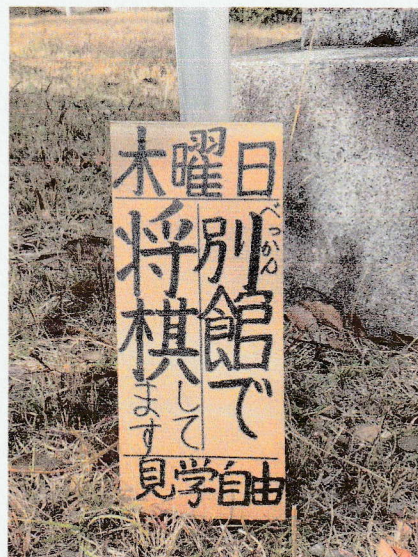 木曜日
別館で
べっかん
将棋してます
見学自由